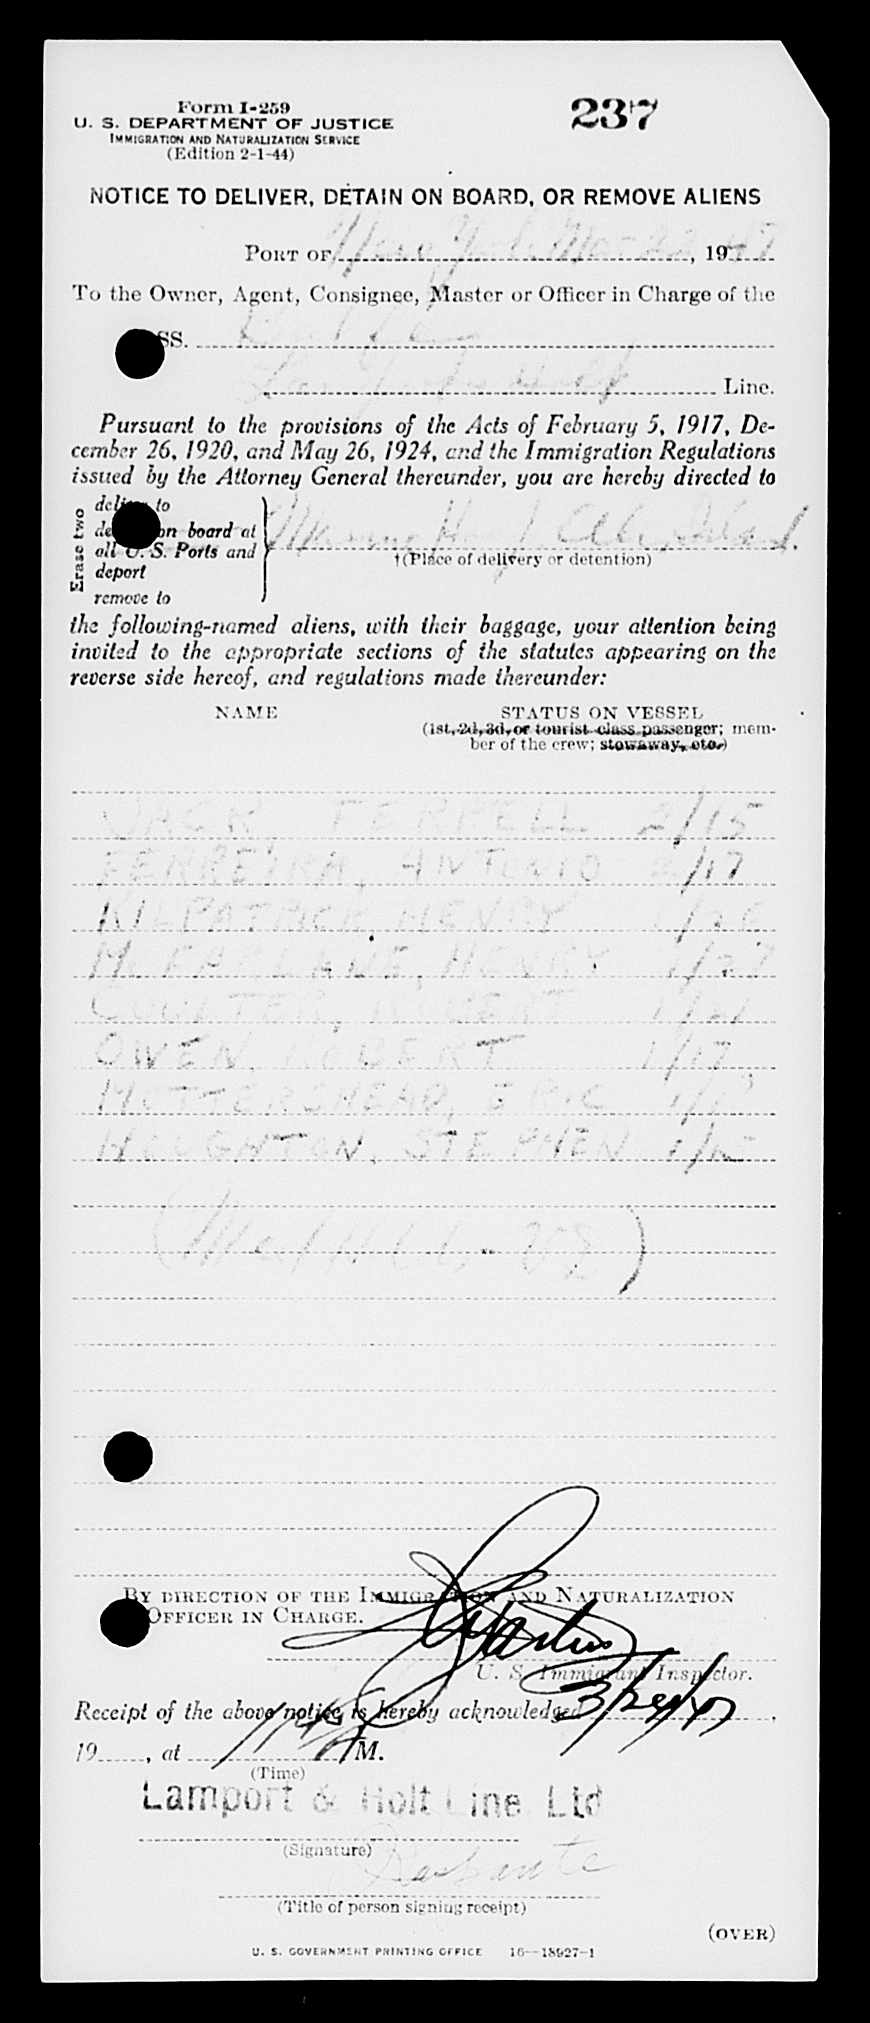 Form I-259
237
U. S. DEPARTMENT OF JUSTICE
IMMIGRATION AND NATURALIZATION SERVICE
(Edition 2-1-44)
NOTICE TO DELIVER, DETAIN ON BOARD, OR REMOVE ALIENS
PORT OF New York, 1947
To the Owner, Agent, Consignee, Master or Officer in Charge of the
SS.
Line.
Pursuant to the provisions of the Acts of February 5, 1917, De-
cember 26, 1920, and May 26, 1924, and the Immigration Regulations
issued by the Attorney General thereunder, you are hereby directed to
Erase two
deliver to
detain on board at
all U. S. Ports and
deport
remove to
Island.
†(Place of delivery or detention)
the following-named aliens, with their baggage, your attention being
invited to the appropriate sections of the statutes appearing on the
reverse side hereof, and regulations made thereunder:
NAME STATUS ON VESSEL
(1st, 2d, 3d, or tourist class passenger; mem-
ber of the crew; stowaway, etc.)
JACK, FERRELL 2/15
FERREIRA, ANTONIO 2/17
KILPATRICK, HENRY
McFARLANE, HENRY 1/27
COULTER, ROBERT 1/21
OWEN, ROBERT 1/17
MOTTERSHEAD, ERIC
HOUGHTON, STEPHEN
BY DIRECTION OF THE IMMIGRATION AND NATURALIZATION
OFFICER IN CHARGE.
U. S. Immigrant Inspector.
Receipt of the above notice is hereby acknowledged 3/24/47,
19 , at M.
(Time)
Lamport & Holt Line Ltd
(Signature)
(Title of person signing receipt)
(OVER)
U. S. GOVERNMENT PRINTING OFFICE 16—18927-1